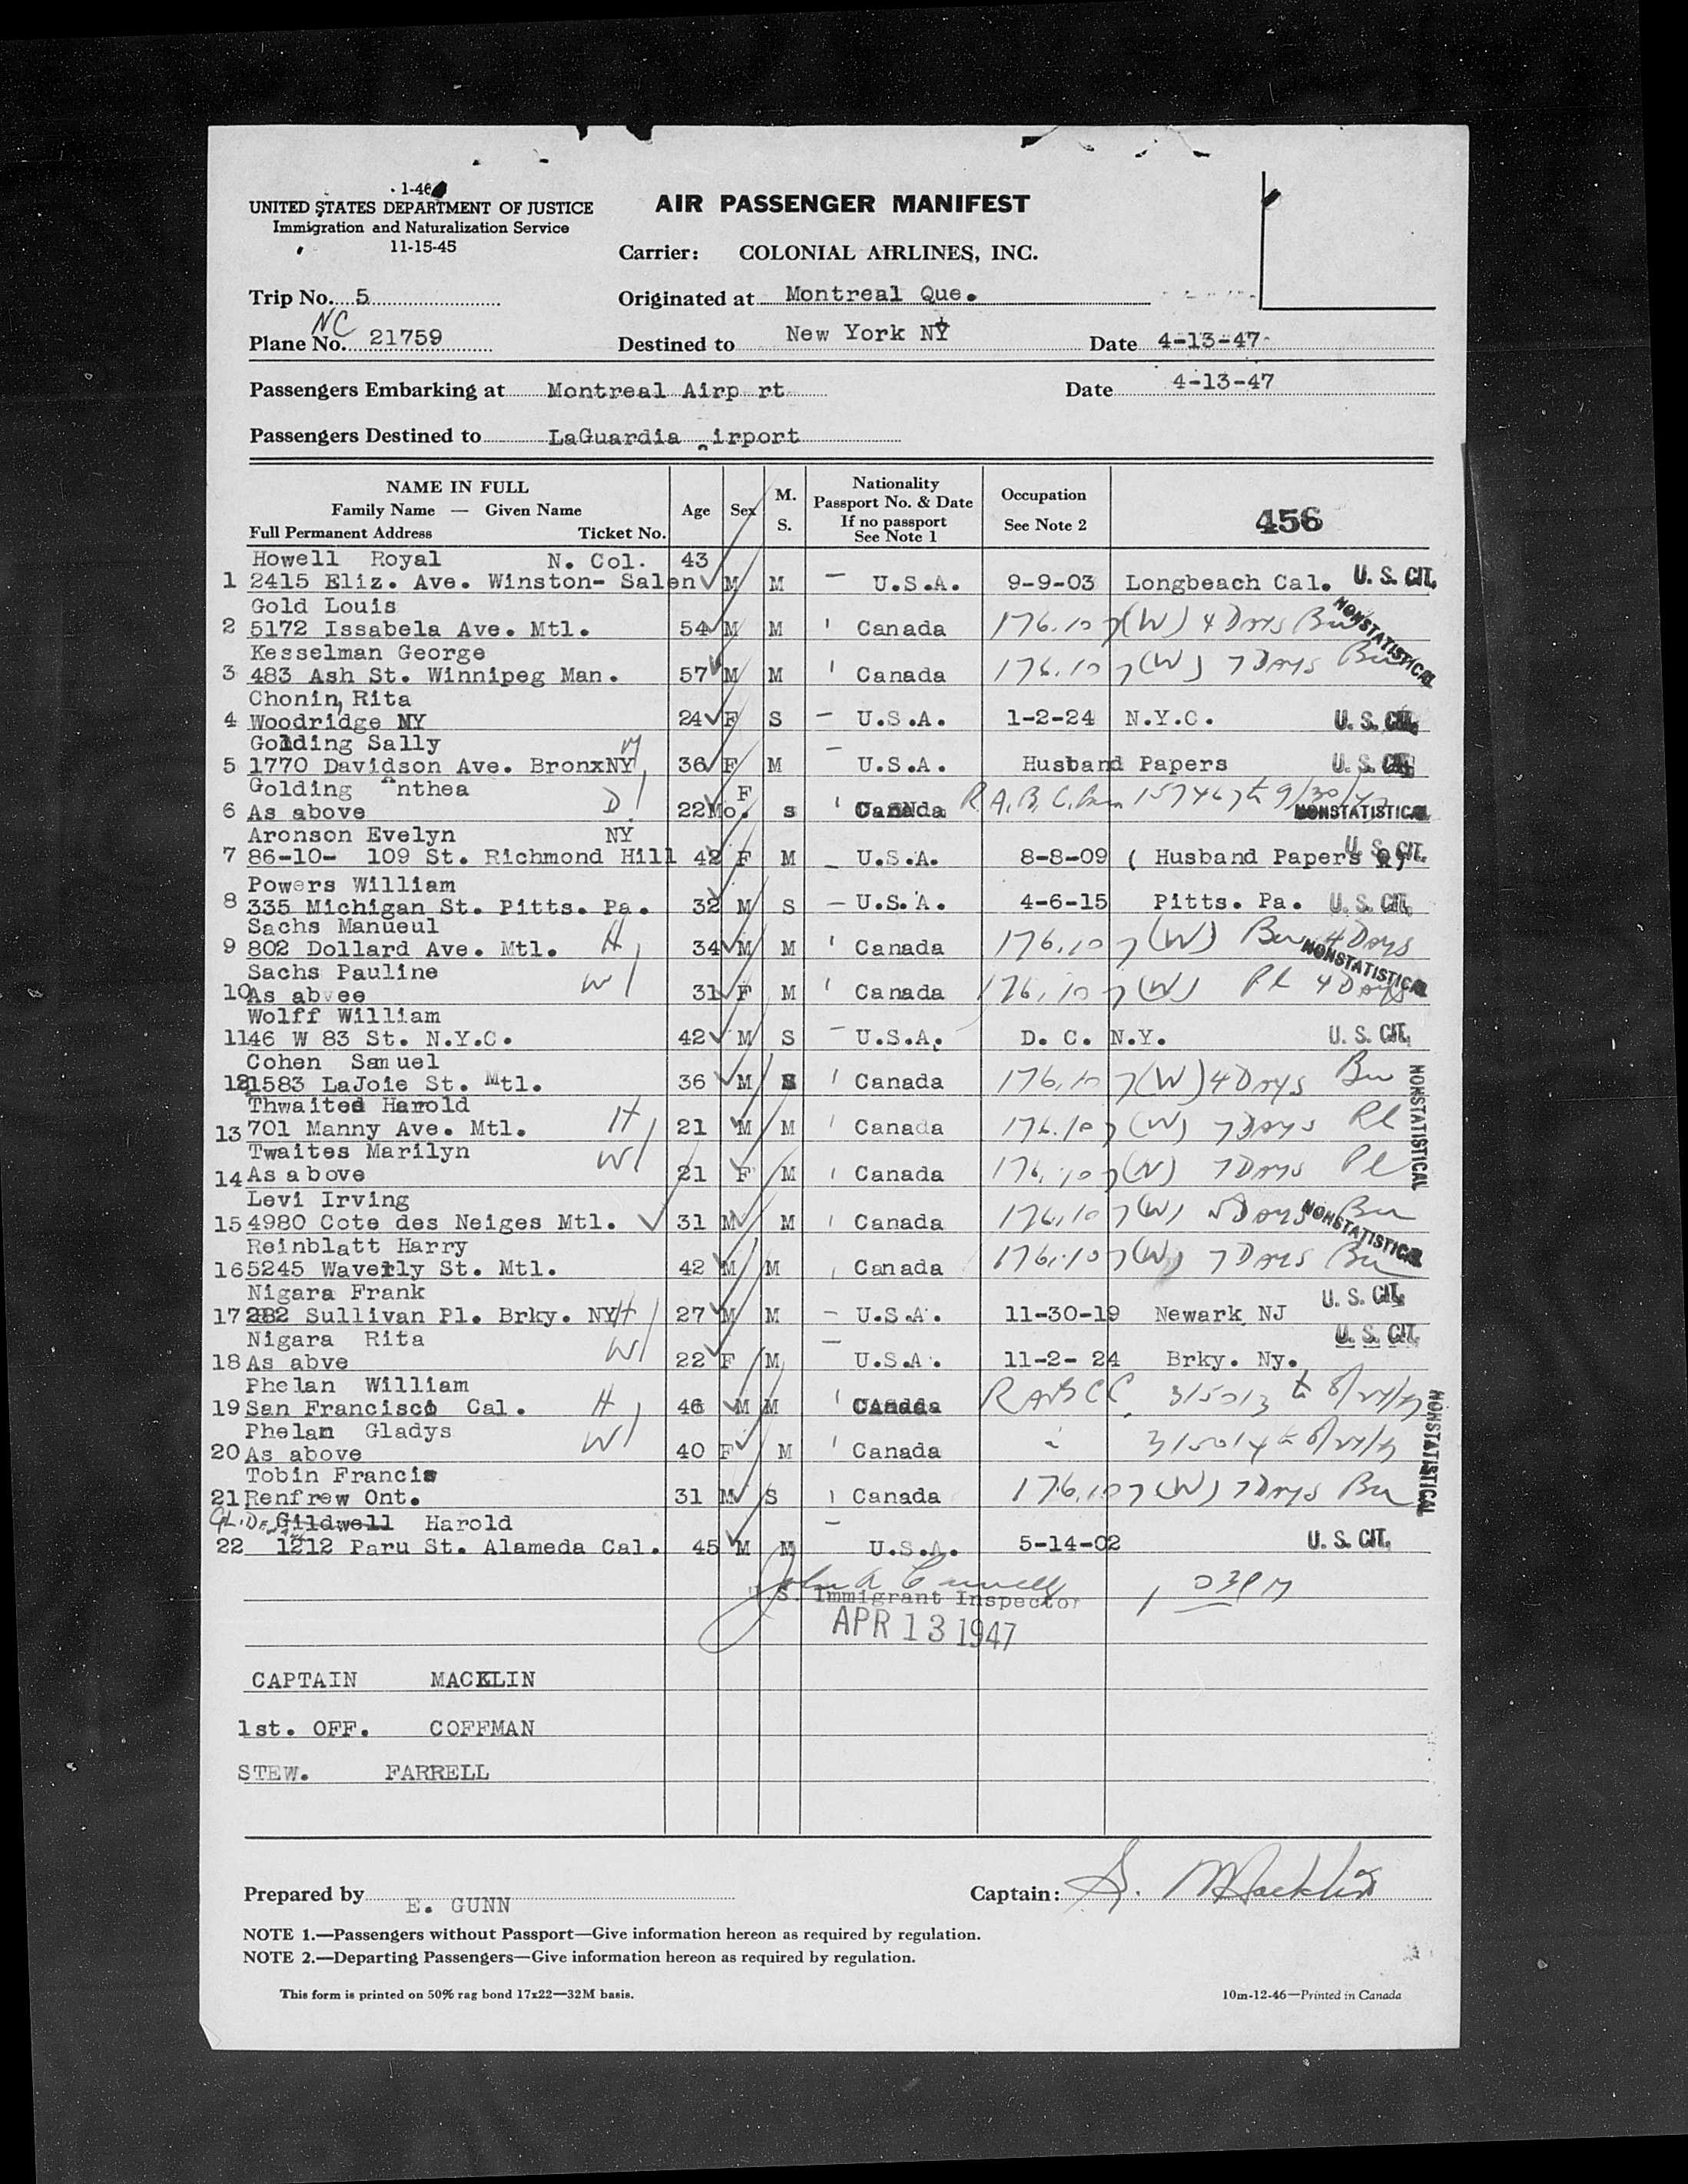 1-46
UNITED STATES DEPARTMENT OF JUSTICE
Immigration and Naturalization Service
11-15-45
AIR PASSENGER MANIFEST
Carrier: COLONIAL AIRLINES, INC.
Trip No. 5
Originated at Montreal Que.
NC
Plane No. 21759
Destined to New York NY
Date 4-13-47
Passengers Embarking at Montreal Airp rt
Date 4-13-47
Passengers Destined to LaGuardia Airport
NAME IN FULL
Family Name — Given Name
Full Permanent Address Ticket No.
Age
Sex
M.
S.
Nationality
Passport No. & Date
If no passport
See Note 1
Occupation
See Note 2
456
Howell Royal N. Col. 43
1 2415 Eliz. Ave. Winston- Salen M M — U.S.A. 9-9-03 Longbeach Cal. U. S. CIT.
Gold Louis
2 5172 Issabela Ave. Mtl. 54 M M Canada 176.107(W) 4 Days Bu NONSTATISTICAL
Kesselman George
3 483 Ash St. Winnipeg Man. 57 M M Canada 176.107(W) 7 Days Bu
Chonin, Rita
4 Woodridge NY 24 F S — U.S.A. 1-2-24 N.Y.C. U. S. CIT.
Golding Sally M
5 1770 Davidson Ave. BronxNY 36 F M — U.S.A. Husband Papers U. S. CIT.
Golding Anthea D F
6 As above 22Mo. s Canada R.A.B.C. NONSTATISTICAL
Aronson Evelyn NY
7 86-10- 109 St. Richmond Hill 42 F M — U.S.A. 8-8-09 ( Husband Papers ) U. S. CIT.
Powers William
8 335 Michigan St. Pitts. Pa. 32 M S — U.S.A. 4-6-15 Pitts. Pa. U. S. CIT.
Sachs Manueul
9 802 Dollard Ave. Mtl. H 34 M M Canada 176.107(W) Bu 4 Days NONSTATISTICAL
Sachs Pauline
10 As abvee W 31 F M Canada 176.107(W) Pl 4 Days
Wolff William
11 46 W 83 St. N.Y.C. 42 M S — U.S.A. D. C. N.Y. U. S. CIT.
Cohen Samuel
12 1583 LaJoie St. Mtl. 36 M S Canada 176.107(W) 4 Days Bu
Thwaites Harold
13 701 Manny Ave. Mtl. H 21 M M Canada 176.107(W) 7 Days Pl NONSTATISTICAL
Twaites Marilyn
14 As above W 21 F M Canada 176.107(W) 7 Days Pl
Levi Irving
15 4980 Cote des Neiges Mtl. 31 M M Canada 176.107(W) Days Bu NONSTATISTICAL
Reinblatt Harry
16 5245 Waverly St. Mtl. 42 M M Canada 176.107(W) 7 Days Bu
Nigara Frank
17 282 Sullivan Pl. Brky. NY H 27 M M — U.S.A. 11-30-19 Newark NJ U. S. CIT.
Nigara Rita
18 As abve W 22 F M — U.S.A. 11-2- 24 Brky. Ny. U. S. CIT.
Phelan William
19 San Francisco Cal. H 46 M M Canada 315013
Phelan Gladys
20 As above W 40 F M Canada 315014 NONSTATISTICAL
Tobin Francis
21 Renfrew Ont. 31 M S Canada 176.107(W) 7 Days Bu
Gildwell Harold
22 1212 Paru St. Alameda Cal. 45 M M — U.S.A. 5-14-02 U. S. CIT.
U.S. Immigrant Inspector
APR 13 1947
1 03PM
CAPTAIN MACKLIN
1st. OFF. COFFMAN
STEW. FARRELL
Prepared by E. GUNN
Captain: S. Macklin
NOTE 1.—Passengers without Passport—Give information hereon as required by regulation.
NOTE 2.—Departing Passengers—Give information hereon as required by regulation.
This form is printed on 50% rag bond 17x22—32M basis.
10m-12-46—Printed in Canada